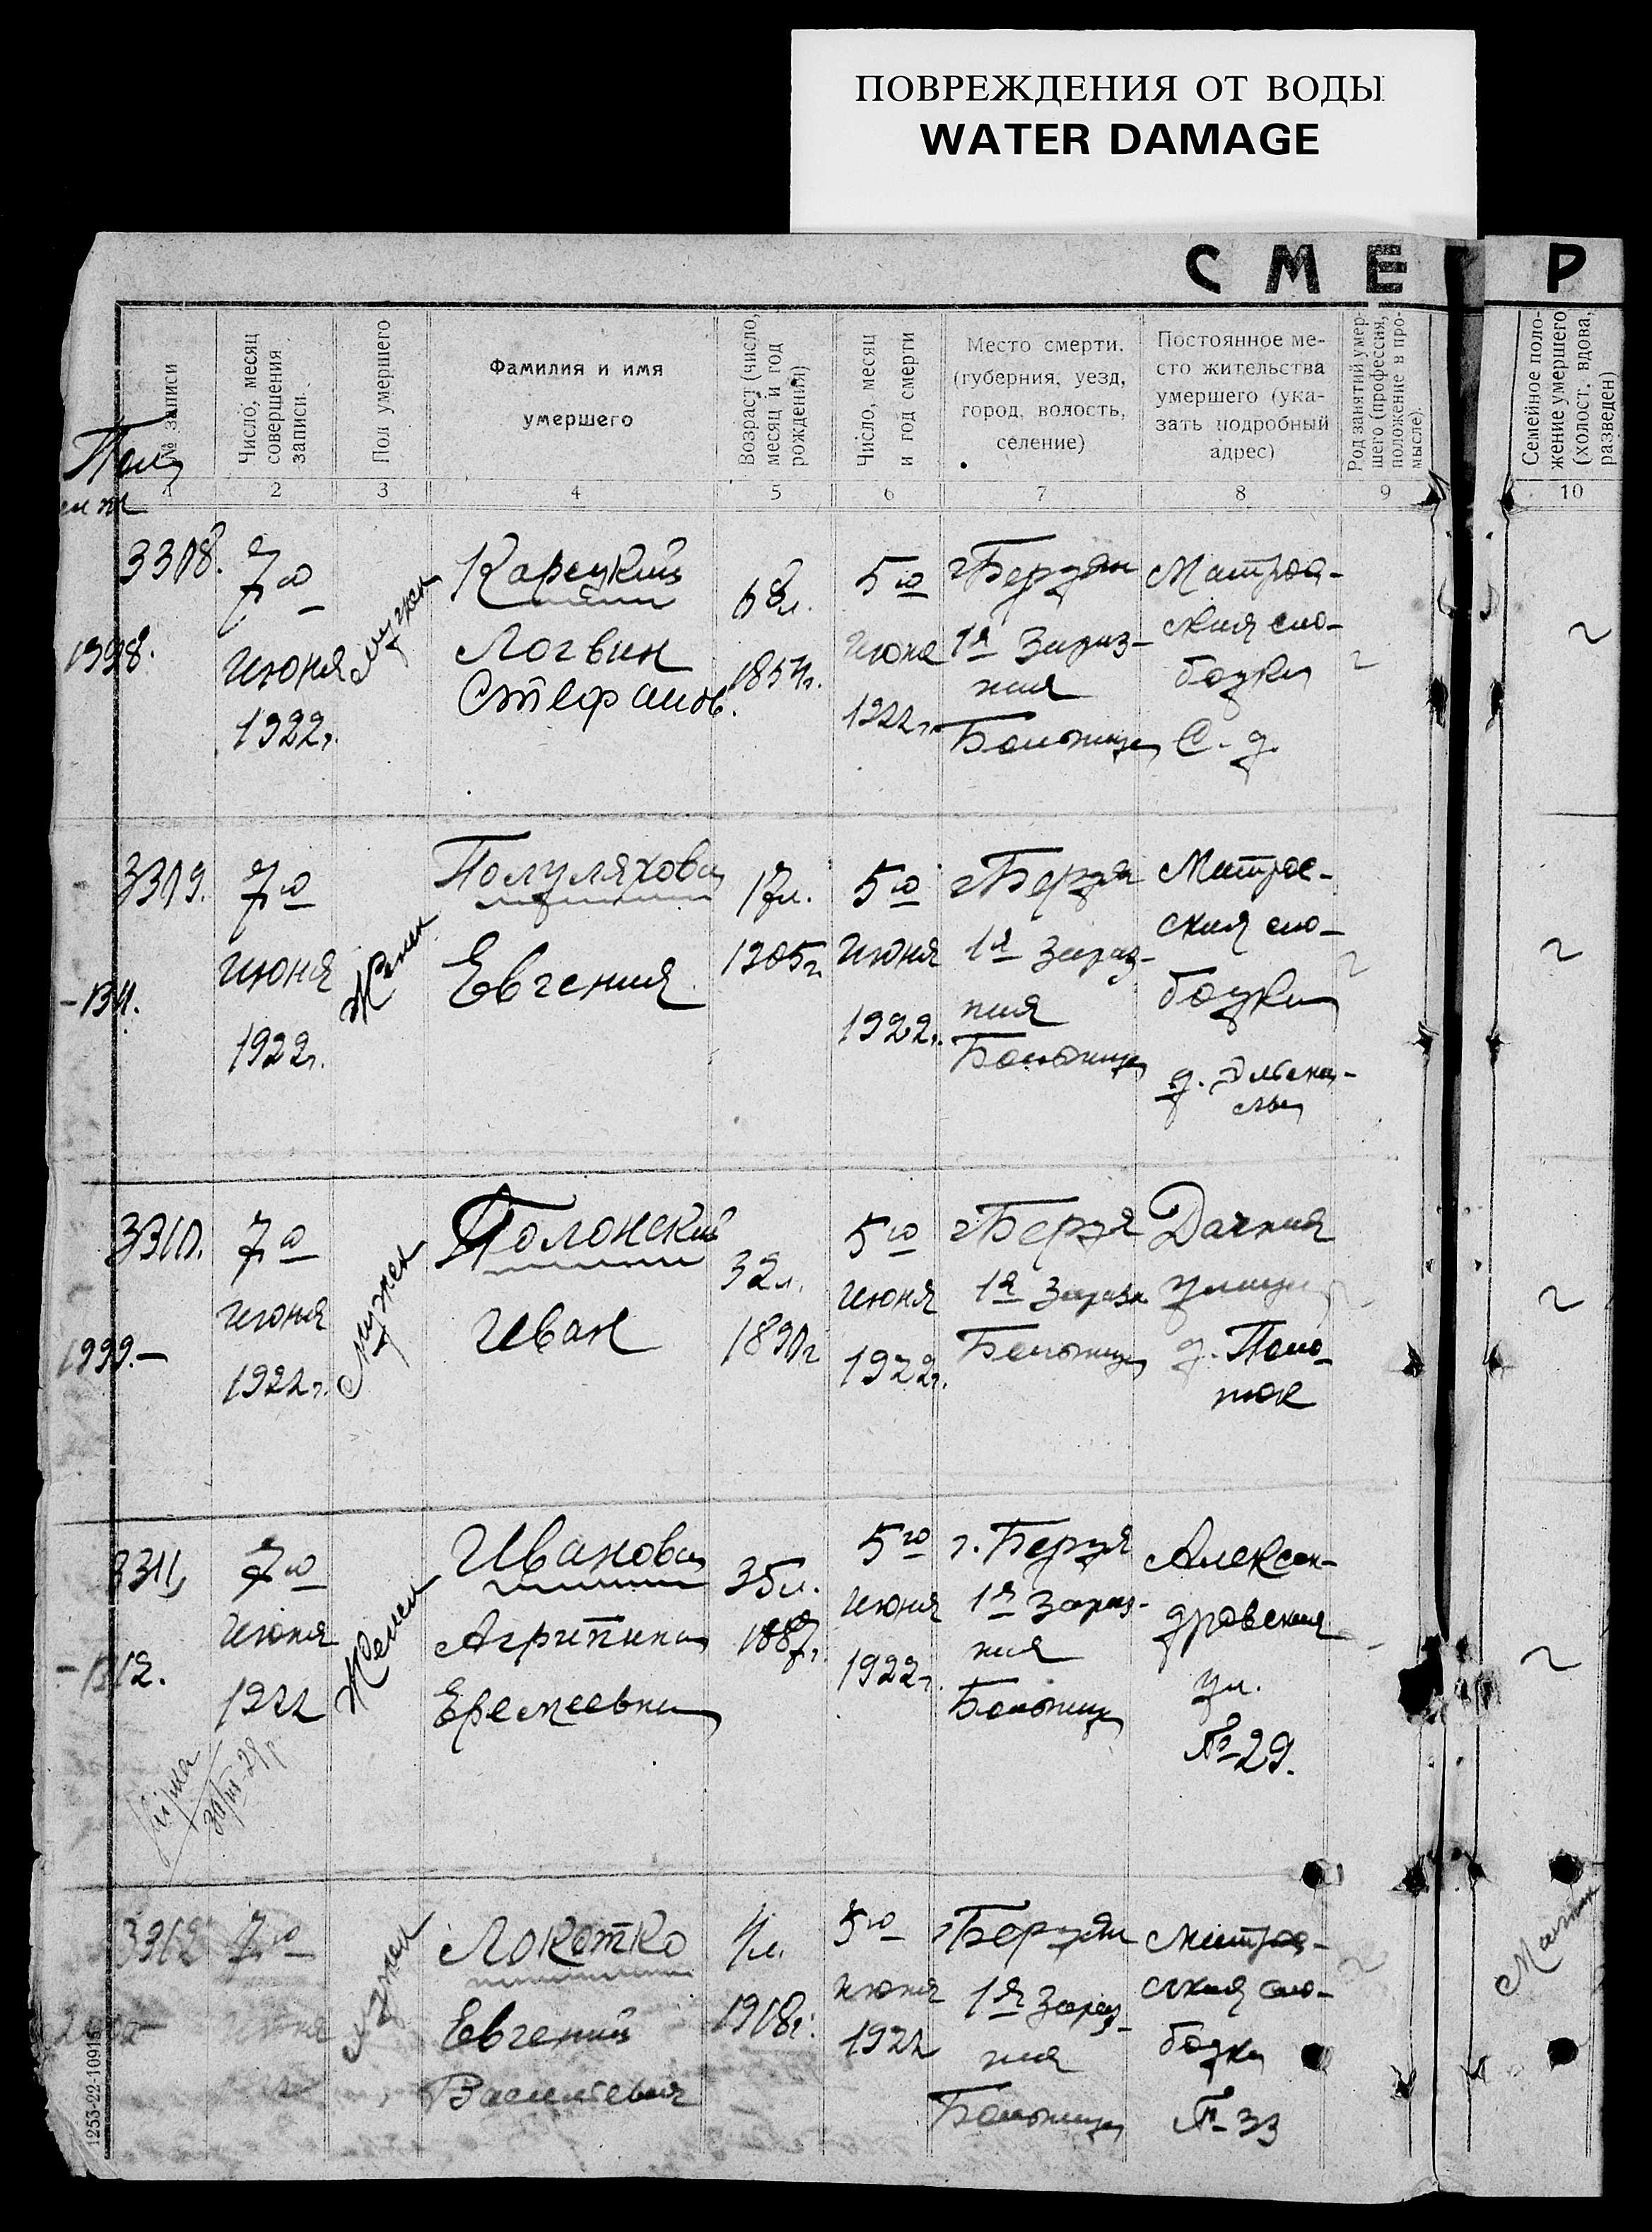 ПОВРЕЖДЕНИЯ ОТ ВОДЫ
WATER DAMAGE
С М Е Р
№ записи
Число, месяц
совершения
записи.
Пол умершего
Фамилия и имя
умершего
Возраст (число,
месяц и год
рождения)
Число, месяц
и год смерти
Место смерти.
(губерния, уезд,
город, волость,
селение)
Постоянное ме-
сто жительства
умершего (ука-
зать подробный
адрес)
Род занятий умер-
шего (профессия,
положение в про-
мысле).
Семейное поло-
жение умершего
(холост, вдова,
разведен)
1 2 3 4 5 6 7 8 9 10
3308.
1998.
7го
июня
1922г.
Мужск
Карецкий
Логвин
Стефанов.
68л.
1854г.
5го
июня
1922г.
г Бердян
1я Зараз-
ная
Больница
Матрос-
ская сло-
бодка
С. д.
3309.
7го
июня
1922г.
Женск
Полуляхова
Евгения
17л.
1905г.
5го
июня
1922г.
г Бердя
1я Зараз-
ная
Больница
Матрос-
ская сло-
бодка
3310.
1999.-
7го
июня
1922г.
Мужск
Полонский
Иван
32л.
1890г
5го
июня
1922г.
г Бердя
1я Заразн
Больница
Дачная
улица
3311
-1312.
7го
июня
1922
Женск
Иванова
Агрипина
Еремеевна
35л.
1887г.
5го
июня
1922г.
г. Бердя
1я Зараз-
ная
Больница
Алексан-
дровская
ул.
№29.
3312
7го
июня
Мужск
Локотко
Евгений
Васильевич
4л.
1918г.
5го
июня
1922
г Бердян
1я Зараз-
ная
Больница
Матрос-
ская сло-
бодка
№ 33
1253-22-10915